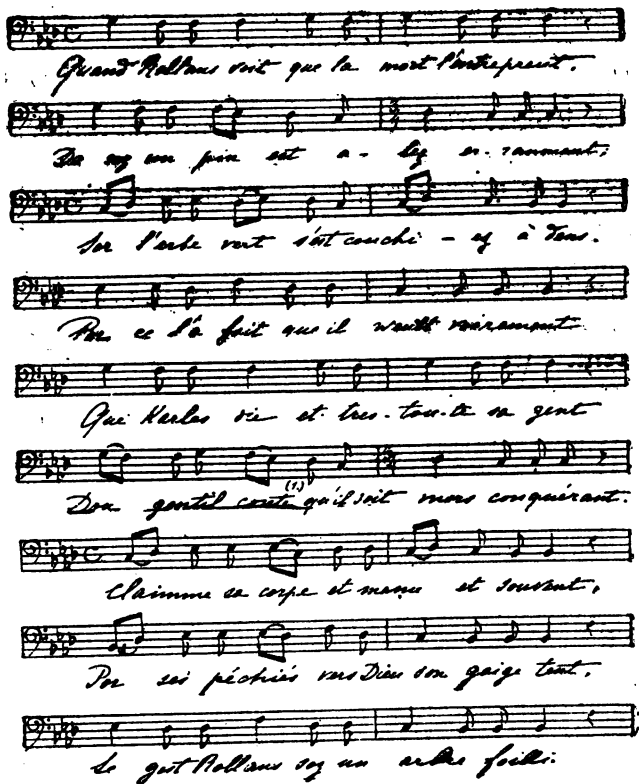 Quand Rollans voit que la mort l'entreprent,
De soz un pin est a - lez er - ranment,
Sor l'erbe vert s'est couchi - ez à dens.
Por ce l'a fait que il voullt voirement
Que Karles die et tres-tou-te sa gent
Dou gentil conte (1.) qu'il soit mors conquérant.
Claimme sa corpe et menu et souvent,
Por ses péchiés vers Dieu son gaige tent.
Se gist Rollans soz un arbre foilli.